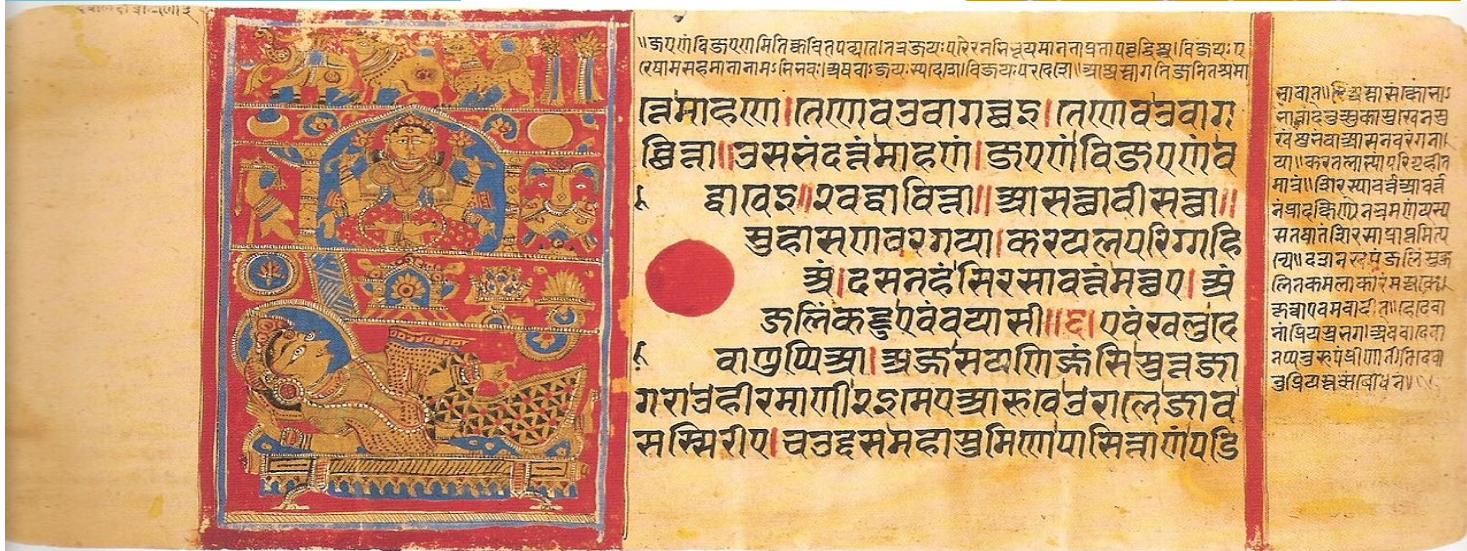 ॥जएणंविजएणमितिक्वचित्पठ्यते।तत्रजयःपरैरनभिभूयमानताप्रतापवृद्धिश्च।विजयःप
रेषामसहमानानामऽभिभवः।अथवाऽजयःस्वदेशे।विजयःपरदेशे॥आश्वस्तागतिजनितश्रमा
त्तेमाहणे।तेणेवउवागच्छइ।तेणेवउवाग
च्छित्ता॥उसभंदत्तंमाहणं।जएणंविजएणंव
द्धावेइ॥२वद्धावित्ता॥आसत्थावीसत्था॥
सुहासणवरगया।करयलपरिग्गहि
अं।दसनहंसिरसावत्तंमत्थए।अं
जलिंकट्टुएवंवयासी॥६।एवंखलुदे
वाणुप्पिआ।अज्जसयणिज्जंसिसुत्तजा
गराओहीरमाणी२इमेएआरूवेउरालेजाव
सस्सिरीए।चउद्दसमहासुमिणेपासित्ताणंपडि
भावात्॥
खंशुभंवाआसनवरंगता
या॥करतलाभ्यांपरिगृहीत
मात्रं॥शिरस्यावर्त्तंआवर्त्त
नंप्रादक्षिण्येनभ्रमणंयस्य
सतथातंशिरसाप्राप्तमित्य
न्ये॥अंजलिंमुकु
लितकमलाकारं
कृत्वाएवमवादीत्॥हेदेवा
नांप्रियसुभगाअथवादेवा
नप्यनुरूपंप्रीणातीतिदेवा
नुप्रियस्तत्संबोधने॥